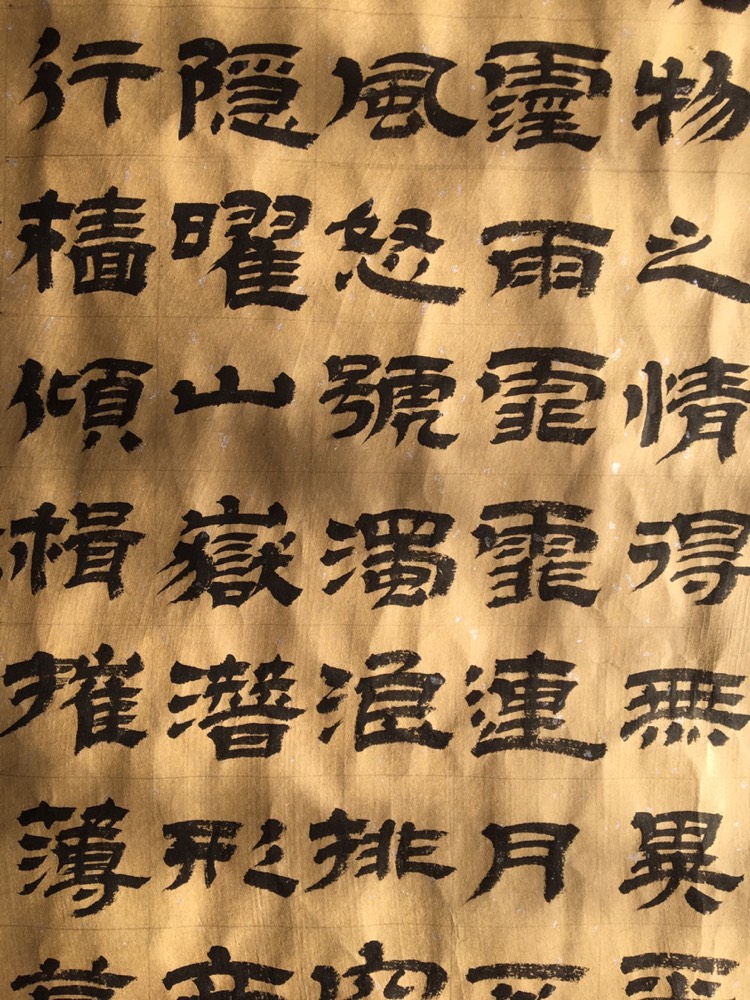 物之情得無異乎
霪雨霏霏連月不
風怒號濁浪排空
隱曜山嶽潛形商
行檣傾楫摧薄暮